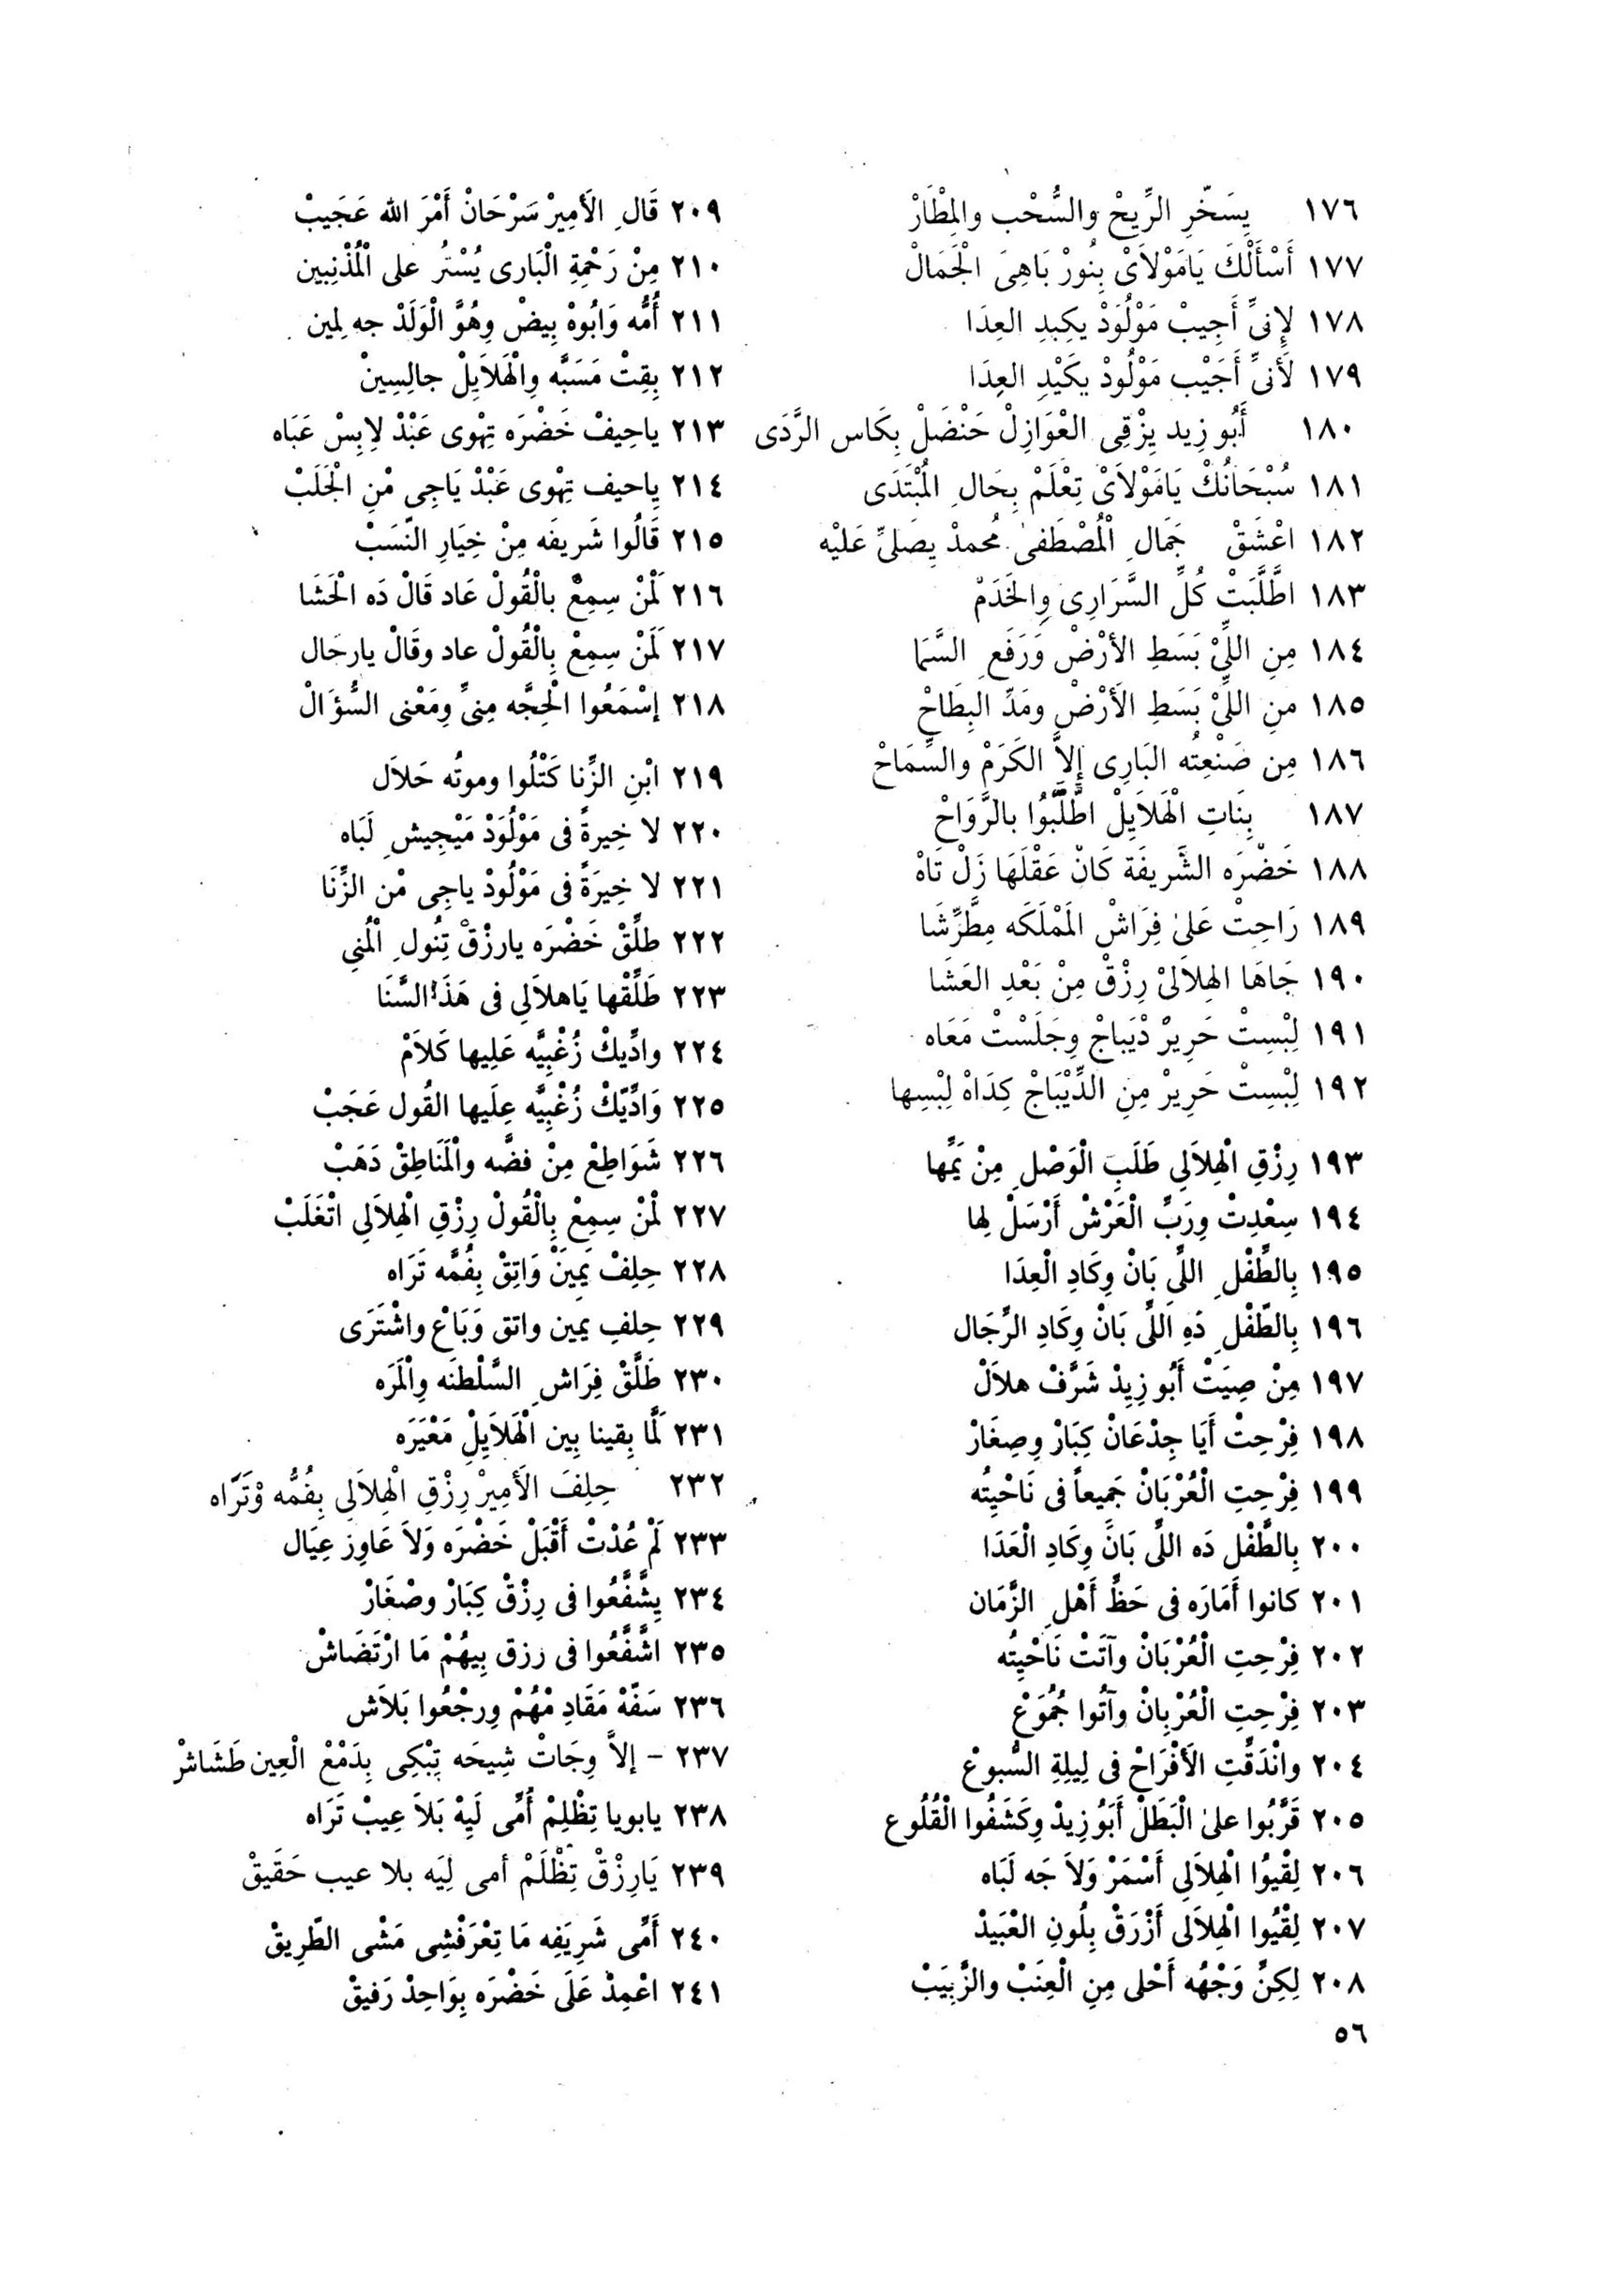 ١٧٦ يِسَخّرِ الرِّيحْ والسُّحْب والمِطَارْ
١٧٧ أَسْأَلْكَ يَامَوْلاَىْ بِنُورْ بَاهِىَ الْجَمَالْ
١٧٨ لإِنىِّ أَجِيبْ مَوْلُودْ يكِيدِ العِدَا
١٧٩ لَأَنىِّ أَجَيْب مَوْلُودْ يكَيْدِ العِدَا
١٨٠ أَبُو زِيد يِزْقِى العْوَازِلْ حَنْضَلْ بِكَاس الرَّدَى
١٨١ سُبْحَانُكْ يَامَوْلاَىْ تِعْلَمْ بِحَالِ المُبْتَدَى
١٨٢ اعْشَقْ جَمَالِ الْمُصْطَفىٰ محمدْ يِصَلىِّ عَليْه
١٨٣ اطَّلَّبَتْ كُلِّ السَّرَارِى وِالخَدَمْ
١٨٤ مِنِ اللِّىْ بَسَطِ الأرْضْ وَرَفَعِ السَّمَا
١٨٥ منِ اللِّىْ بَسَطِ الأَرْضْ ومَدِّ البِطَاحْ
١٨٦ مِن صَنْعِتُه البَارِى إِلاَّ الكَرَمْ والسِّمَاحْ
١٨٧ بِنَاتِ الْهَلاَيِلْ اطَّلَّبُوا بالرَّوَاحْ
١٨٨ خَضْرَه الشَّرِيفَة كَانْ عَقْلَهَا زَلْ تَاهْ
١٨٩ رَاحِتْ عَلىٰ فِرَاشْ المَمْلَكَه مِطَّرِّشَا
١٩٠ جَاهَا الهِلاَلىْ رِزْقْ مِنْ بَعْدِ العَشَا
١٩١ لِبْسِتْ حَرِيرْ دْيَباجْ وِجَلَسْتْ مَعَاه
١٩٢ لِبْسِتْ حَرِيرْ مِنِ الدِّيْبَاجْ كِدَاهْ لِبْسِها
١٩٣ رِزْقِ الْهِلاَلِى طَلَبَ الْوَصْلِ مِنْ يَمَّها
١٩٤ سِعْدِتْ وِرَبِّ الْعَرْشْ أَرْسَلْ لِها
١٩٥ بِالطِّفْلِ اللىِّ بَانْ وِكَادِ الْعِدَا
١٩٦ بِالطِّفْلِ دَهِ اللىِّ بَانْ وِكَادِ الرِّجَال
١٩٧ مِنْ صِيَتْ أَبُو زِيِدْ شَرَّفْ هلاَلْ
١٩٨ فِرْحِتْ أَيَا جِدْعَانْ كِبَارْ وِصِغَارْ
١٩٩ فِرْحِتِ الْعُرْبَانْ جَمِيعاً فى نَاحْيِتُه
٢٠٠ بِالطِّفْل دَه اللىِّ بَانَ وِكَادِ الْعَدَا
٢٠١ كانوا أَمَارَه فى حَظِّ أَهْلِ الزَّمَان
٢٠٢ فِرْحِتِ الْعُرْبَانْ وآتَتْ نَاحْيِتُه
٢٠٣ فِرْحِتِ الْعُرْبِانْ وآتُوا جُمُوَعْ
٢٠٤ وانْدَقَّتِ الأَفْرَاحْ فى لِيلِةِ السُّبوعْ
٢٠٥ قَرَّبُوا علىٰ الْبَطَلْ أَبَوُ زِيدْ وِكَشَفُوا الْقُلُوع
٢٠٦ لِقْيوُا الْهِلاَلِى أَسْمَرْ وَلاَ جَه لَبَاه
٢٠٧ لِقْيُوا الْهِلاَلَى أَزْرَقْ بِلُونِ العْبَيدْ
٢٠٨ لِكِنِّ وَجْهُه أَحْلى مِنِ الْعِنَبْ والزَّبِيَبْ
٥٦
٢٠٩ قَالِ الأَمِيرْ سَرْحَانْ أَمْرَ الله عَجَيبْ
٢١٠ مِنْ رَحْمِةِ الْبَارى يُسْتُرُ على الْمُذْنِبِين
٢١١ أُمُّه وَابُوهْ بِيضْ وِهُوَّ الْوَلَدْ جه لِمين
٢١٢ بِقِتْ مَسَبَّه وِالْهَلاَيِلْ جالِسِينْ
٢١٣ ياحِيفْ خَضْرَه تِهْوى عَبْدْ لاِبِسْ عَبَاه
٢١٤ ياحيف تِهْوى عَبْدْ يَاجِى مْنِ الْجَلَبْ
٢١٥ قَالُوا شَرِيفَه مِنْ خِيَارِ النَّسَبْ
٢١٦ لَمْنْ سِمِعْ بالْقُولْ عَاد قَالْ دَه الْحَشَا
٢١٧ لَمَنْ سِمِعْ بِالْقُولْ عاد وقَالْ يارجَال
٢١٨ إسْمَعُوا الْحِجَّه مِنىِّ وِمَعْنى السُّؤَالْ
٢١٩ ابْنِ الزِّنا كَتْلُوا وموتُه حَلاَل
٢٢٠ لا خِيرةً فى مَوْلُوَدْ مَيْجِيشِ لَبَاه
٢٢١ لا خِيرَةً فى مَوْلُودْ ياجِى مْن الزِّنَا
٢٢٢ طلَّقْ خَضْرَه يارزْقْ تِنُولِ الْمُنىِ
٢٢٣ طَلَّقْها يَاهلاَلِى فى هَذَا السَّنَا
٢٢٤ وادِّيكْ زُغْبِيَّه عَلِيها كَلاَمْ
٢٢٥ وَادِّيّكْ زُغْبِيَّه عِلَيها القُول عَجَبْ
٢٢٦ شَوَاطِعْ مِنْ فضَّه والْمَنَاطِقْ دَهَبْ
٢٢٧ لْمنْ سِمِعْ بِالْقُولْ رِزْقِ الْهِلاَلِى اتْغَلَبْ
٢٢٨ حِلِفْ يَمِينْ وَاتِقْ بِفُمَّه تَرَاه
٢٢٩ حِلفِ يمين واتق وَبَاعْ واشْتَرَى
٢٣٠ طَلَّقْ فِرَاشِ السَّلْطنَه وِالْمَرَه
٢٣١ لَمَّا بِقينا بِين الْهَلاَيِلْ مَعْيَرَه
٢٣٢ حِلِفَ الأَمِيرْ رِزْقِ الْهِلاَلِى بِفُمُّه وْتَرَّاه
٢٣٣ لَمْ عُدْتْ أَقْبَلْ خَضْرَه وَلاَ عَاوِز عِيَال
٢٣٤ يِشَّفَّعُوا فى رِزْقْ كِبَارْ وصْغَارْ
٢٣٥ اشَّفَّعُوا فى رزق بِيهُمْ مَا ارْتَضَاشْ
٢٣٦ سَفَّهْ مَقَادِ مْهُمْ وِرجْعُوا بَلاَش
٢٣٧ - إلاَّ وِجَاتْ شِيحَه تِبْكِى بِدَمْعْ الْعِين طَشَاشْ
٢٣٨ يابويا تِظْلِمْ أُمِّى لَيِهْ بَلاَ عِيبْ تَرَاه
٢٣٩ يَارِزْقْ تِظْلَمْ أمى لِيَه بلا عيب حَقَيقْ
٢٤٠ أَمِّى شَرِيَفِه مَا تِعْرَفْشِى مَشْى الطَّرِيقْ
٢٤١ اعْمِدْ عَلَى خَضْرَه بِوَاحِدْ رَفيقْ